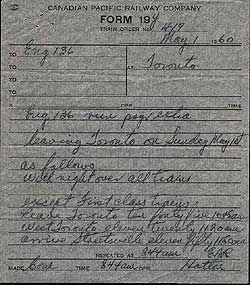 CANADIAN PACIFIC RAILWAY COMPANY
FORM 19Y
TRAIN ORDER NO. 417
May 1 1960
TO Eng 136
TO AT Toronto
TO
TO
X CPR TIME
Eng 136 run psgr extra
leaving Toronto on Sunday May 1st
as follows
With right over all trains
except First class trains
leave Toronto ten forty five 1045am
West Toronto eleven twenty 1120am
arrive Streetsville eleven fifty 1150am
REPEATED AT 844am EAR
MADE Com TIME 844am OPR